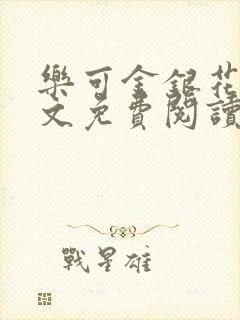 樂可金銀花
文免費閱讀
戰星雄